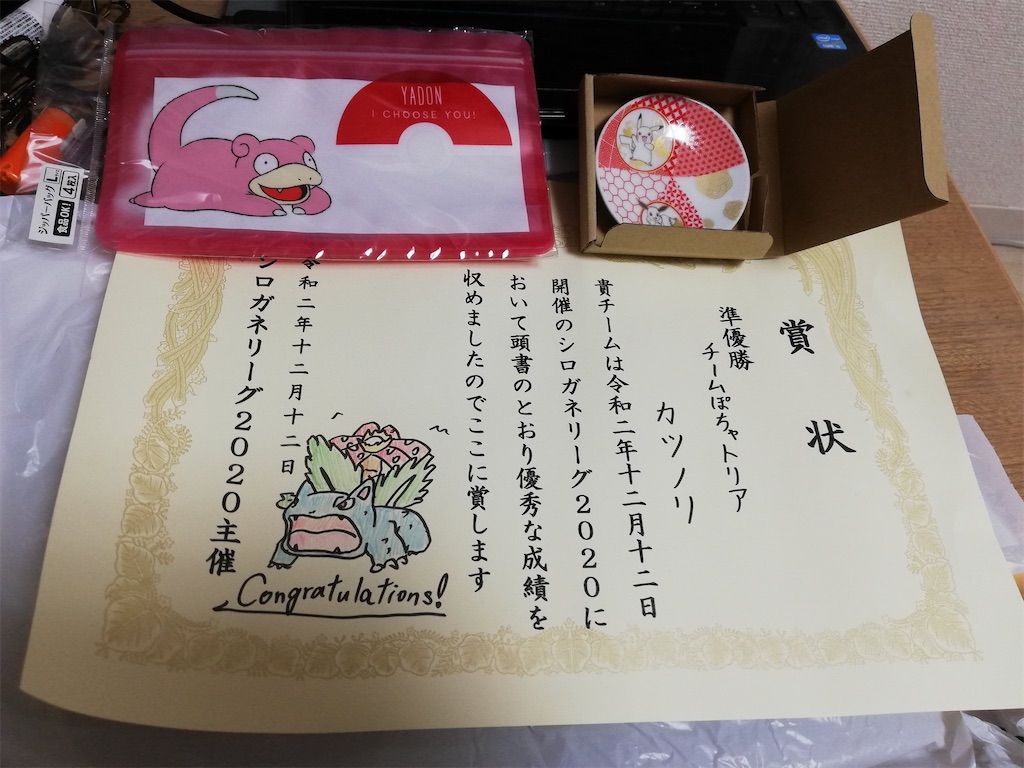 YADON
I CHOOSE YOU!
ジッパーバッグL
4枚入
食品OK!
賞状
準優勝
チームぽちゃトリア
カツノリ
貴チームは令和二年十二月十二日
開催のシロガネリーグ2020に
おいて頭書のとおり優秀な成績を
収めましたのでここに賞します
令和二年十二月十二日
シロガネリーグ2020主催
Congratulations!